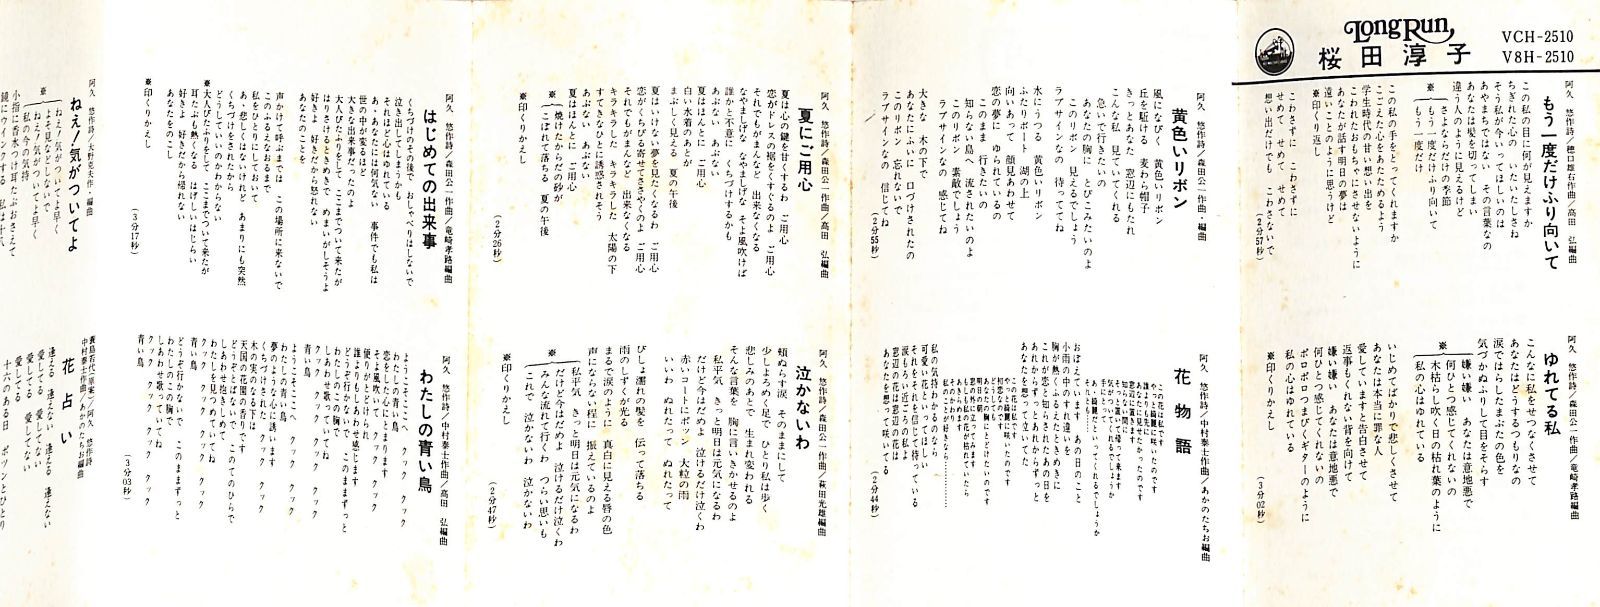 Long Run,
桜田淳子
VCH-2510
V8H-2510
もう一度だけふり向いて
阿久 悠作詩／穂口雄右作曲／高田 弘編曲
この私の目に何が見えますか
ちぎれた心の いたいたしさね
そう私が今いってほしいのは
あやまちではない その言葉なの
あなたは髪を切って
違う人のように見えるけど
※
さよならだけの季節
もう一度だけふり向いて
もう一度だけ
この私の手をとってくれますか
こごえた心をあたためるよう
学生時代の甘い想い出を
こわれたおもちゃにさせないように
あなたが話す明日の夢は
遠いことのように思うけど
※印くり返し
こわさずに こわさずに
せめて せめて せめて
想い出だけでも こわさないで
(2分57秒)
ゆれてる私
阿久 悠作詩／森田公一作曲／竜崎孝路編曲
こんなに私をせつなくさせて
あなたはどうするつもりなの
涙ではらしたまぶたの色を
気づかぬふりして目をそらす
※
嫌い嫌い あなたは意地悪で
何ひとつ感じてくれないの
木枯らし吹く日の枯れ葉のように
私の心はゆれている
いじめてばかりで悲しくさせて
あなたは本当に罪な人
愛していますと告白させて
返事もくれない背を向けて
嫌い嫌い あなたは意地悪で
何ひとつ感じてくれないの
ポロポロつまびくギターのように
私の心はゆれている
※印くりかえし
(3分02秒)
黄色いリボン
阿久 悠作詩／森田公一作曲／高田 弘編曲
風になびく 黄色いリボン
丘を駆ける 麦わら帽子
きっとあなた 窓辺にもたれ
こんな私 見ていてくれる
急いで行きたいの
あなたの胸に とびこみたいのよ
このリボン 見えるでしょう
ラブサインなの 待っててね
水にうつる 黄色いリボン
ふたりボート 湖の上
向いあって 顔見あわせて
恋の夢に ゆられている
このまま 行きたいの
知らない島へ 流されたいのよ
このリボン 素敵でしょう
ラブサインなの 感じてね
大きな 木の下で
あなたにふいに 口づけされたの
このリボン 忘れないで
ラブサインなの 信じてね
(2分55秒)
花物語
阿久 悠作詩／中村泰士作曲／あかのたちお編曲
この花は私です
やっと綺麗に咲いたのです
おぼえていますか あの日のこと
小雨の中のすれ違いを
胸が熱くふるえたときめきに
これが恋と知らされたあの日を
あれからずっと あれからずっと
あなたを想って泣いてた
私の気持わかるのなら
可愛いといってほしい
それを それを信じて待っている
涙もろい近ごろの私よ
窓辺の花は窓辺の花は
あなたを想って咲いてる
(2分44秒)
夏にご用心
阿久 悠作詩／森田公一作曲／高田 弘編曲
夏は心の鍵を甘くするわ ご用心
恋がドレスの裾をくすぐるのよ ご用心
それでもがまんなど 出来なくなる
なやましげな なやましげな そよ風吹けば
誰かと不意に くちづけするかも
あぶない あぶない
夏はほんとに ご用心
白い水着のあとが
まぶしく見える 夏の午後
夏はいけない夢を見たくなるわ ご用心
恋がくちびる寄せてささやくのよ ご用心
それでもがまんなど 出来なくなる
キラキラした キラキラした 太陽の下
すてきなひとに誘惑されそう
あぶない あぶない
夏はほんとに ご用心
※
焼けたからだの砂が
こぼれて落ちる 夏の午後
※印くりかえし
(2分26秒)
泣かないわ
阿久 悠作詩／森田公一作曲／萩田光雄編曲
頬ぬらす涙 そのままにして
少しよろめく足で ひとり私は歩く
悲しみのあとで 生まれ変われる
そんな言葉を 胸に言いきかせるのよ
私平気 きっと明日は元気になるわ
だけど今はだめよ 泣けるだけ泣くわ
赤いコートにポツン 大粒の雨
いいわ ぬれたって ぬれたって
びしょ濡れの髪を 伝って落ちる
雨のしずくが光る
まるで涙のように 真白に見える唇の色
声にならない程に 振えているのよ
※
私平気 きっと明日は元気になるわ
だけど今はだめよ 泣けるだけ泣くわ
みんな流れて行くわ つらい思いも
これで 泣かないわ 泣かないわ
※印くりかえし
(2分47秒)
はじめての出来事
阿久 悠作詩／森田公一作曲／竜崎孝路編曲
くちづけのその後で おしゃべりはしないで
泣き出してしまうかも
それほど心はゆれている
あゝあなたには何気ない 事件でも私は
世の中が変るほど
大きな出来事だったのよ
大人びたふりをして ここまでついて来たが
はりさけるときめきで めまいがしそうよ
好きよ 好きだから怒れない
あなたのことを
声かけて呼ぶまでは この場所に来ないで
このふるえなおるまで
私をひとりにしておいて
あゝ悲しくはないけれど あまりにも突然
くちづけをされたから
どうしていいのかわからない
※大人びたふりをして ここまでついて来たが
耳たぶも熱くなる はげしいはじらい
好きよ 好きだから帰れない
あなたをのこして
※印くりかえし
(3分17秒)
わたしの青い鳥
阿久 悠作詩／中村泰士作曲／高田 弘編曲
ようこそここへ クック クック
わたしの青い鳥
恋をした心にとまります
そよ風吹いて クック クック
便りがとどけられ クック クック
誰よりもしあわせ感じます
どうぞ行かないで このままずっと
わたしのこの胸で
しあわせ歌っていてね
クック クック クック クック
青い鳥
ようこそここへ クック クック
わたしの青い鳥
夢のような心に誘います
くちづけされた クック クック
木の実の甘さです クック クック
天国の花園の香りです
どうぞとばないで このてのひらで
しあわせ抱きしめて
わたしを見つめていてね
クック クック クック クック
青い鳥
どうぞ行かないで このままずっと
わたしのこの胸で
しあわせ歌っていてね
クック クック クック クック
青い鳥
(3分03秒)
ねえ!気がついてよ
阿久 悠作詩／大野克夫作・編曲
※
ねえ!気がついてよ早く
よそ見などしないで
ねえ!気がついてよ早く
私の今の気持
花占い
中村泰士作曲／あかのたちお編曲
逢える 逢えない 逢える 逢えない
愛してる 愛してない
愛してる 愛してない
愛してる